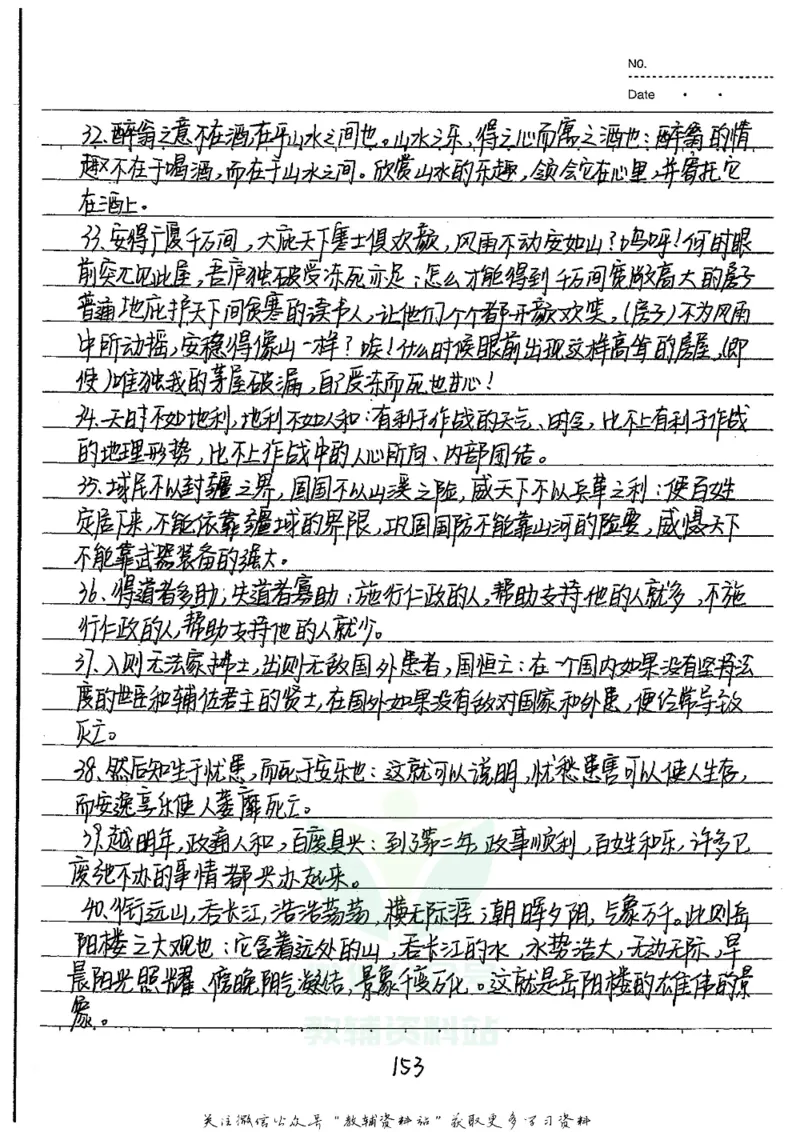 NO.
Date
32.醉翁之意不在酒,在乎山水之间也。山水之乐,得之心而寓之酒也:醉翁的情
趣不在于喝酒,而在于山水之间。欣赏山水的乐趣,领会它在心里,并寄托它
在酒上。
33、安得广厦千万间,大庇天下寒士俱欢颜,风雨不动安如山?呜呼!何时眼
前突兀见此屋,吾庐独破受冻死亦足:怎么才能得到千万间宽敞高大的房子
普遍地庇护天下间贫寒的读书人,让他们个个都开颜欢笑,(房子)不为风雨
中所动摇,安稳得像山一样?唉!什么时候眼前出现这样高耸的房屋,(即
使)唯独我的茅屋破漏,自己受冻而死也甘心!
34.天时不如地利,地利不如人和:有利于作战的天气、时令,比不上有利于作战
的地理形势,比不上作战中的人心所向、内部团结。
35、域民不以封疆之界,固国不以山溪之险,威天下不以兵革之利:使百姓
定居下来,不能依靠疆域的界限,巩固国防不能靠山河的险要,威慑天下
不能靠武器装备的强大。
36、得道者多助,失道者寡助:施行仁政的人,帮助支持他的人就多,不施
行仁政的人,帮助支持他的人就少。
37.入则无法家拂士,出则无敌国外患者,国恒亡:在一个国内如果没有坚持法
度的世臣和辅佐君主的贤士,在国外如果没有敌对国家和外患,便经常导致
灭亡。
38、然后知生于忧患,而死于安乐也:这就可以说明,忧愁患害可以使人生存,
而安逸享乐使人萎靡死亡。
39.越明年,政通人和,百废具兴:到了第二年,政事顺利,百姓和乐,许多已
废弛不办的事情都兴办起来。
40.衔远山,吞长江,浩浩荡荡,横无际涯;朝晖夕阴,气象万千。此则岳
阳楼之大观也:它含着远处的山,吞长江的水,水势浩大,无边无际,早
晨阳光照耀、傍晚阴气凝结,景象千变万化。这就是岳阳楼的雄伟的景
象。
教辅资料站
153
关注微信公众号"教辅资料站"获取更多学习资料